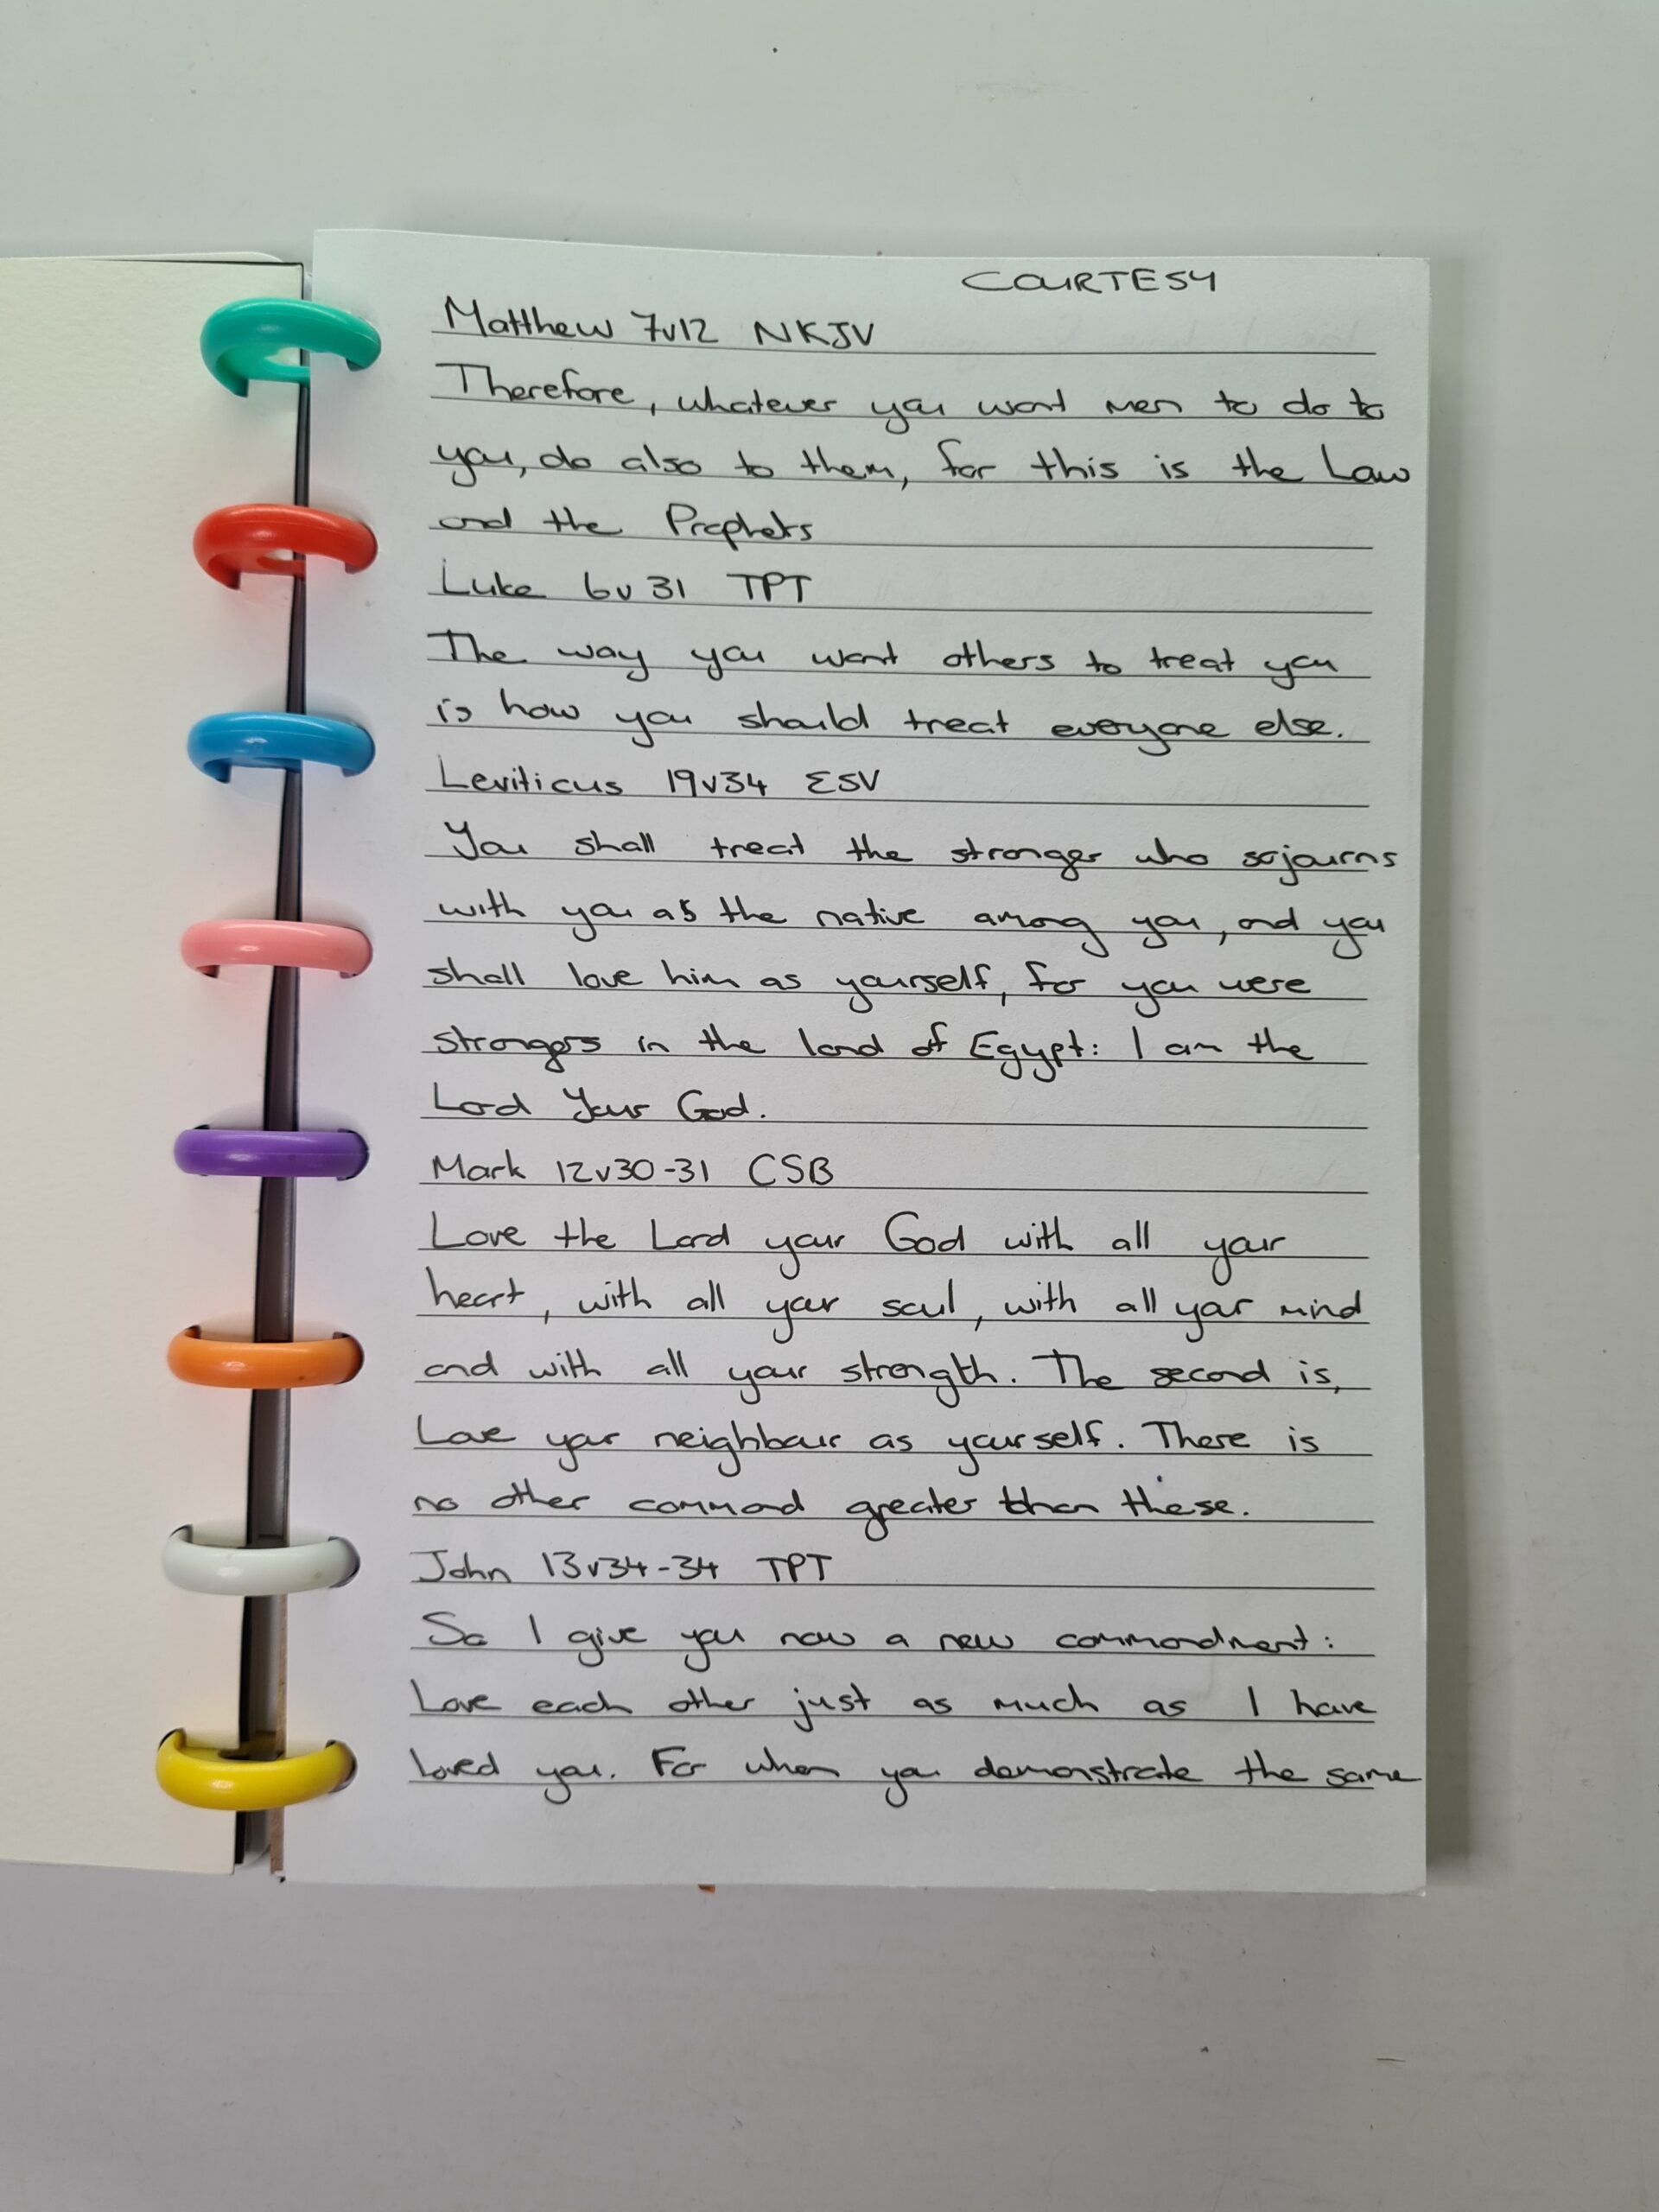 COURTESY
Matthew 7v12 NKJV
Therefore, whatever you want men to do to
you, do also to them, for this is the Law
and the Prophets
Luke 6v31 TPT
The way you want others to treat you
is how you should treat everyone else.
Leviticus 19v34 ESV
You shall treat the stranger who sojourns
with you as the native among you, and you
shall love him as yourself, for you were
strangers in the land of Egypt: I am the
Lord Your God.
Mark 12v30-31 CSB
Love the Lord your God with all your
heart, with all your soul, with all your mind
and with all your strength. The second is,
Love your neighbour as yourself. There is
no other command greater than these.
John 13v34-34 TPT
So I give you now a new commandment:
Love each other just as much as I have
loved you. For when you demonstrate the same